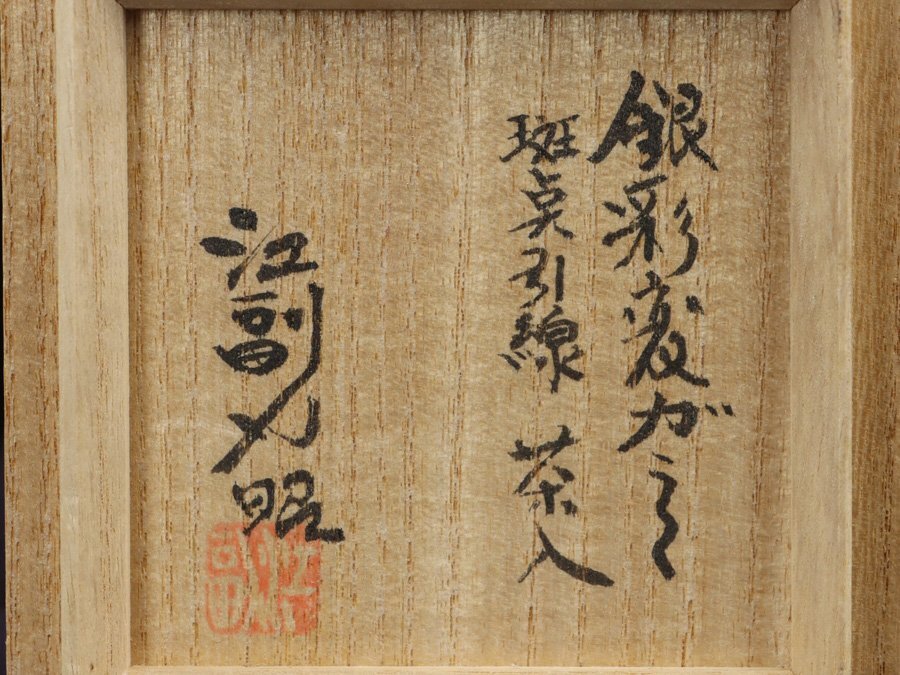 銀彩変ガラス
斑点引線 茶入
江副行昭